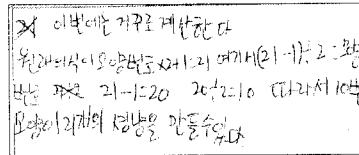 이번에는 거꾸로 계산한다
원래의 식이 모양번호×2+1=21 여기서 (21-1)÷2=모양
번호 21-1=20 20÷2=10 따라서 10번
모양이 21개의 성냥을 만들수있다.